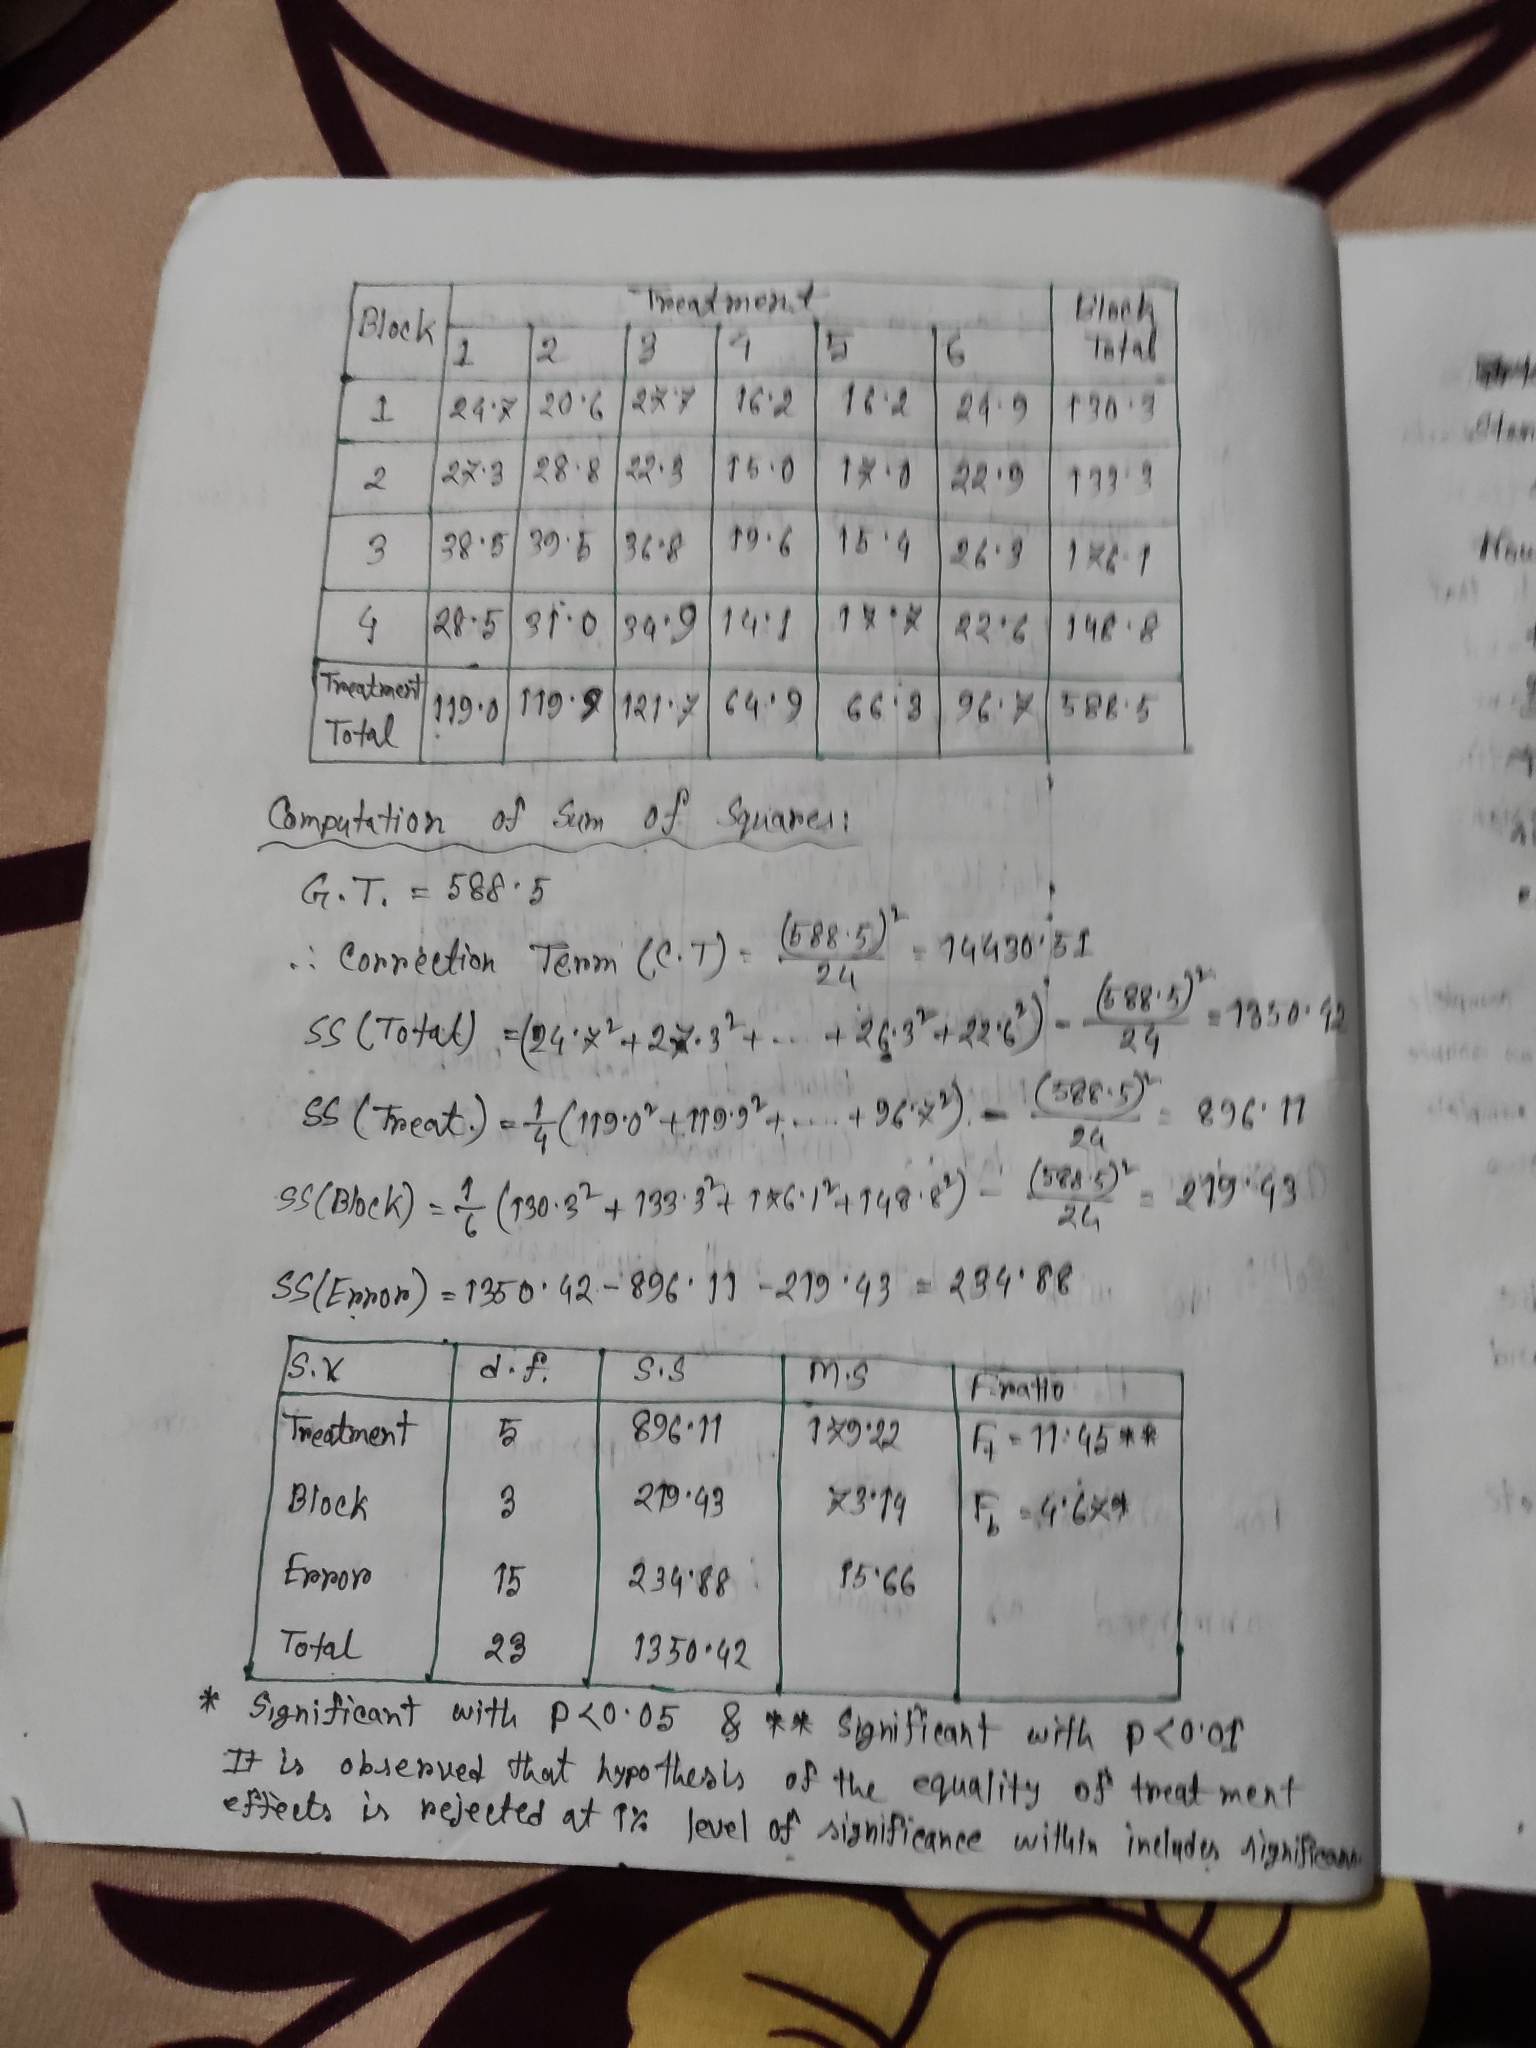 Block Treatment Block Total
1 2 3 4 5 6
1 24.7 20.6 27.7 16.2 16.2 24.9 130.3
2 27.3 28.8 22.3 15.0 17.0 22.9 133.3
3 38.5 39.5 36.8 19.6 15.4 26.3 176.1
4 28.5 31.0 34.9 14.1 17.7 22.6 148.8
Treatment Total 119.0 119.9 121.7 64.9 66.3 96.7 588.5
Computation of Sum of Squares:
G.T. = 588.5
∴ Correction Term (C.T) = (588.5)²/24 = 14430.51
SS (Total) = (24.7² + 27.3² + ... + 26.3² + 22.6²) - (588.5)²/24 = 1350.42
SS (Treat.) = 1/4 (119.0² + 119.9² + .... + 96.7²) - (588.5)²/24 = 896.11
SS (Block) = 1/6 (130.3² + 133.3² + 176.1² + 148.8²) - (588.5)²/24 = 219.43
SS (Error) = 1350.42 - 896.11 - 219.43 = 234.88
S.V d.f. S.S M.S F.ratio
Treatment 5 896.11 179.22 Ft = 11.45**
Block 3 219.43 73.14 Fb = 4.67*
Error 15 234.88 15.66
Total 23 1350.42
* Significant with P<0.05 & ** Significant with P<0.01
It is observed that hypothesis of the equality of treatment
effects is rejected at 1% level of significance within includes